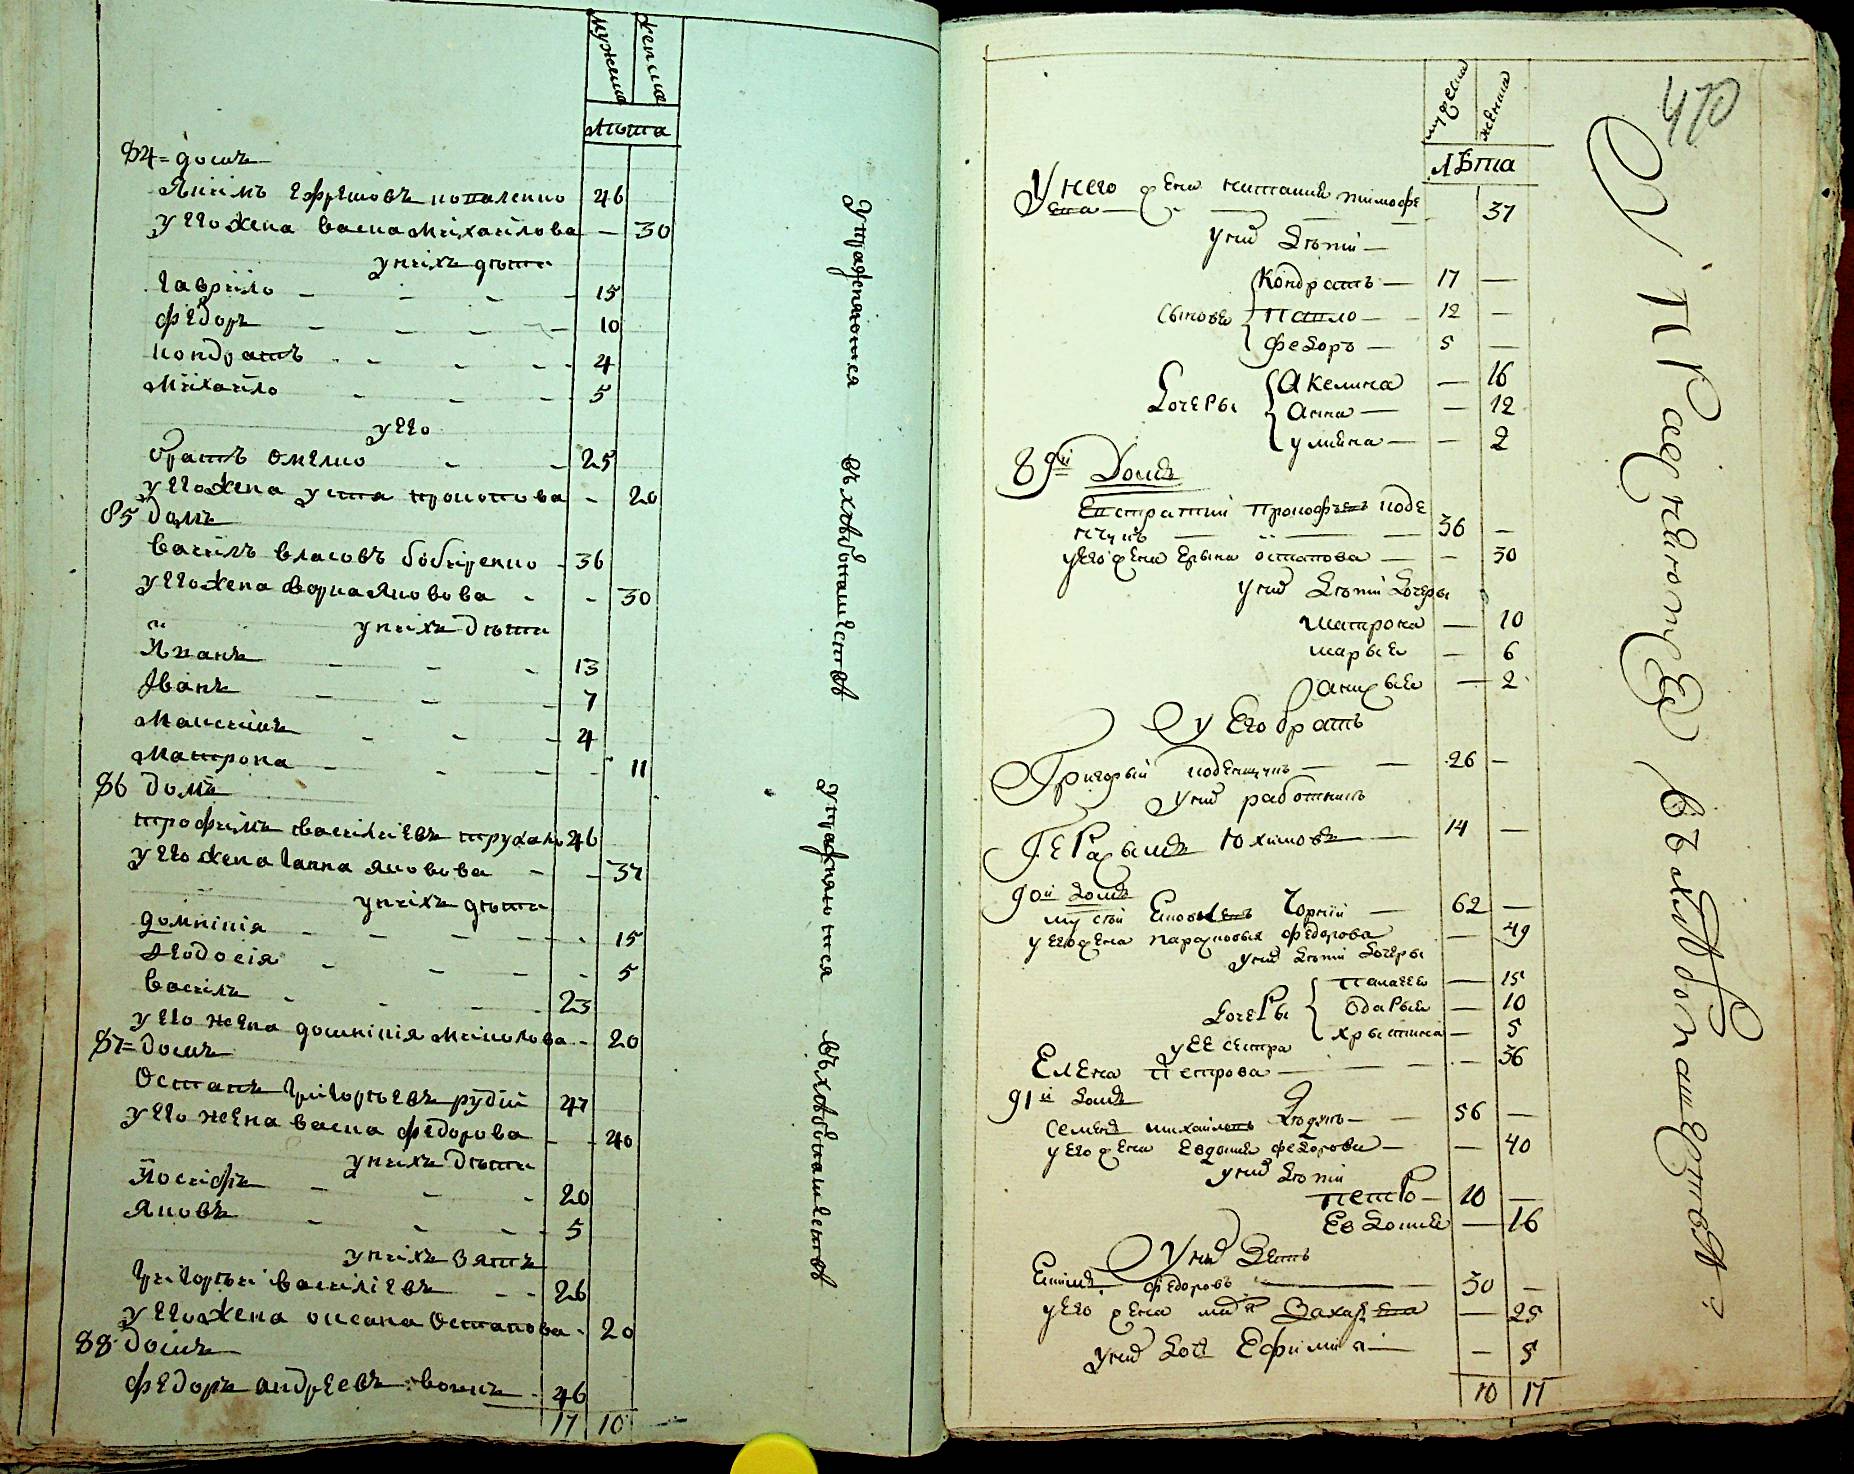 мужеска женска
лѣта
84= домъ
Якимъ Ефремовъ коваленко 46
у его жена васка михайлова — 30
у нихъ дѣти
гаврило 15
федоръ 10
кондратъ 4
михайло 5
у его
братъ омелко 25
у его жена устя прокопова - 20
85 домъ
василъ власовъ бобиренко 36
у его жена Яковова - 30
у нихъ дѣти
13
Іванъ 7
Максимъ 4
Матрона 11
86 домъ
трофимъ василіевъ 46
у его жена ганна яковова - 37
у нихъ дѣти
домникія 15
феодосія 5
василъ 23
у его жена домникія николова - 20
87= домъ
Остапъ григоріевъ рудій 47
у его жена васка федорова - 40
у нихъ дѣти
Йосифъ 20
Яковъ 5
у нихъ зять
григорій василіевъ 26
у его жена оксана Остапова - 20
88 домъ
федоръ андреевъ вовкъ 46
17 10
упражняются въ хлѣбопашествѣ
упражняются въ хлѣбопашествѣ
470
мужеска женска
лѣта
У него жена тимофе
ева — 37
у них дѣти —
Кондратъ — 17 —
сынове павло — 12 —
федоръ — 5 —
Акелина — 16
дочеры анна — — 12
улияна — — 2
89й Домъ
Евстратий Прокофьевъ
36 —
у его жена Ерына остапова — — 30
у них дѣти дочеры
матрона — 10
марья — 6
— 2
у Его братъ
Григорый 26 —
у них работникъ
Герасымъ Юхимовъ 14 —
90й домъ
Чорний — 62 —
у его жена парасковья федорова — 49
у них дѣти дочеры
палагея — 15
дочеры одарья — 10
хрыстина — 5
у ее сестра
Елена Петрова — 36
91й домъ
семенъ михайловъ 56 —
у его жена Евдокия федорова — — 40
у них дѣти
петро — 10 —
Евдокия — 16
У них Зять
федоровъ 30 —
у его жена Захарева — 25
у них дочь Ефимия — — 5
10 17
Упражняются въ хлѣбопашествѣ